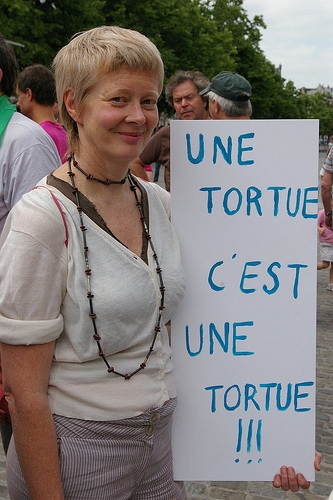 UNE
TORTUE
C'EST
UNE
TORTUE
!!!